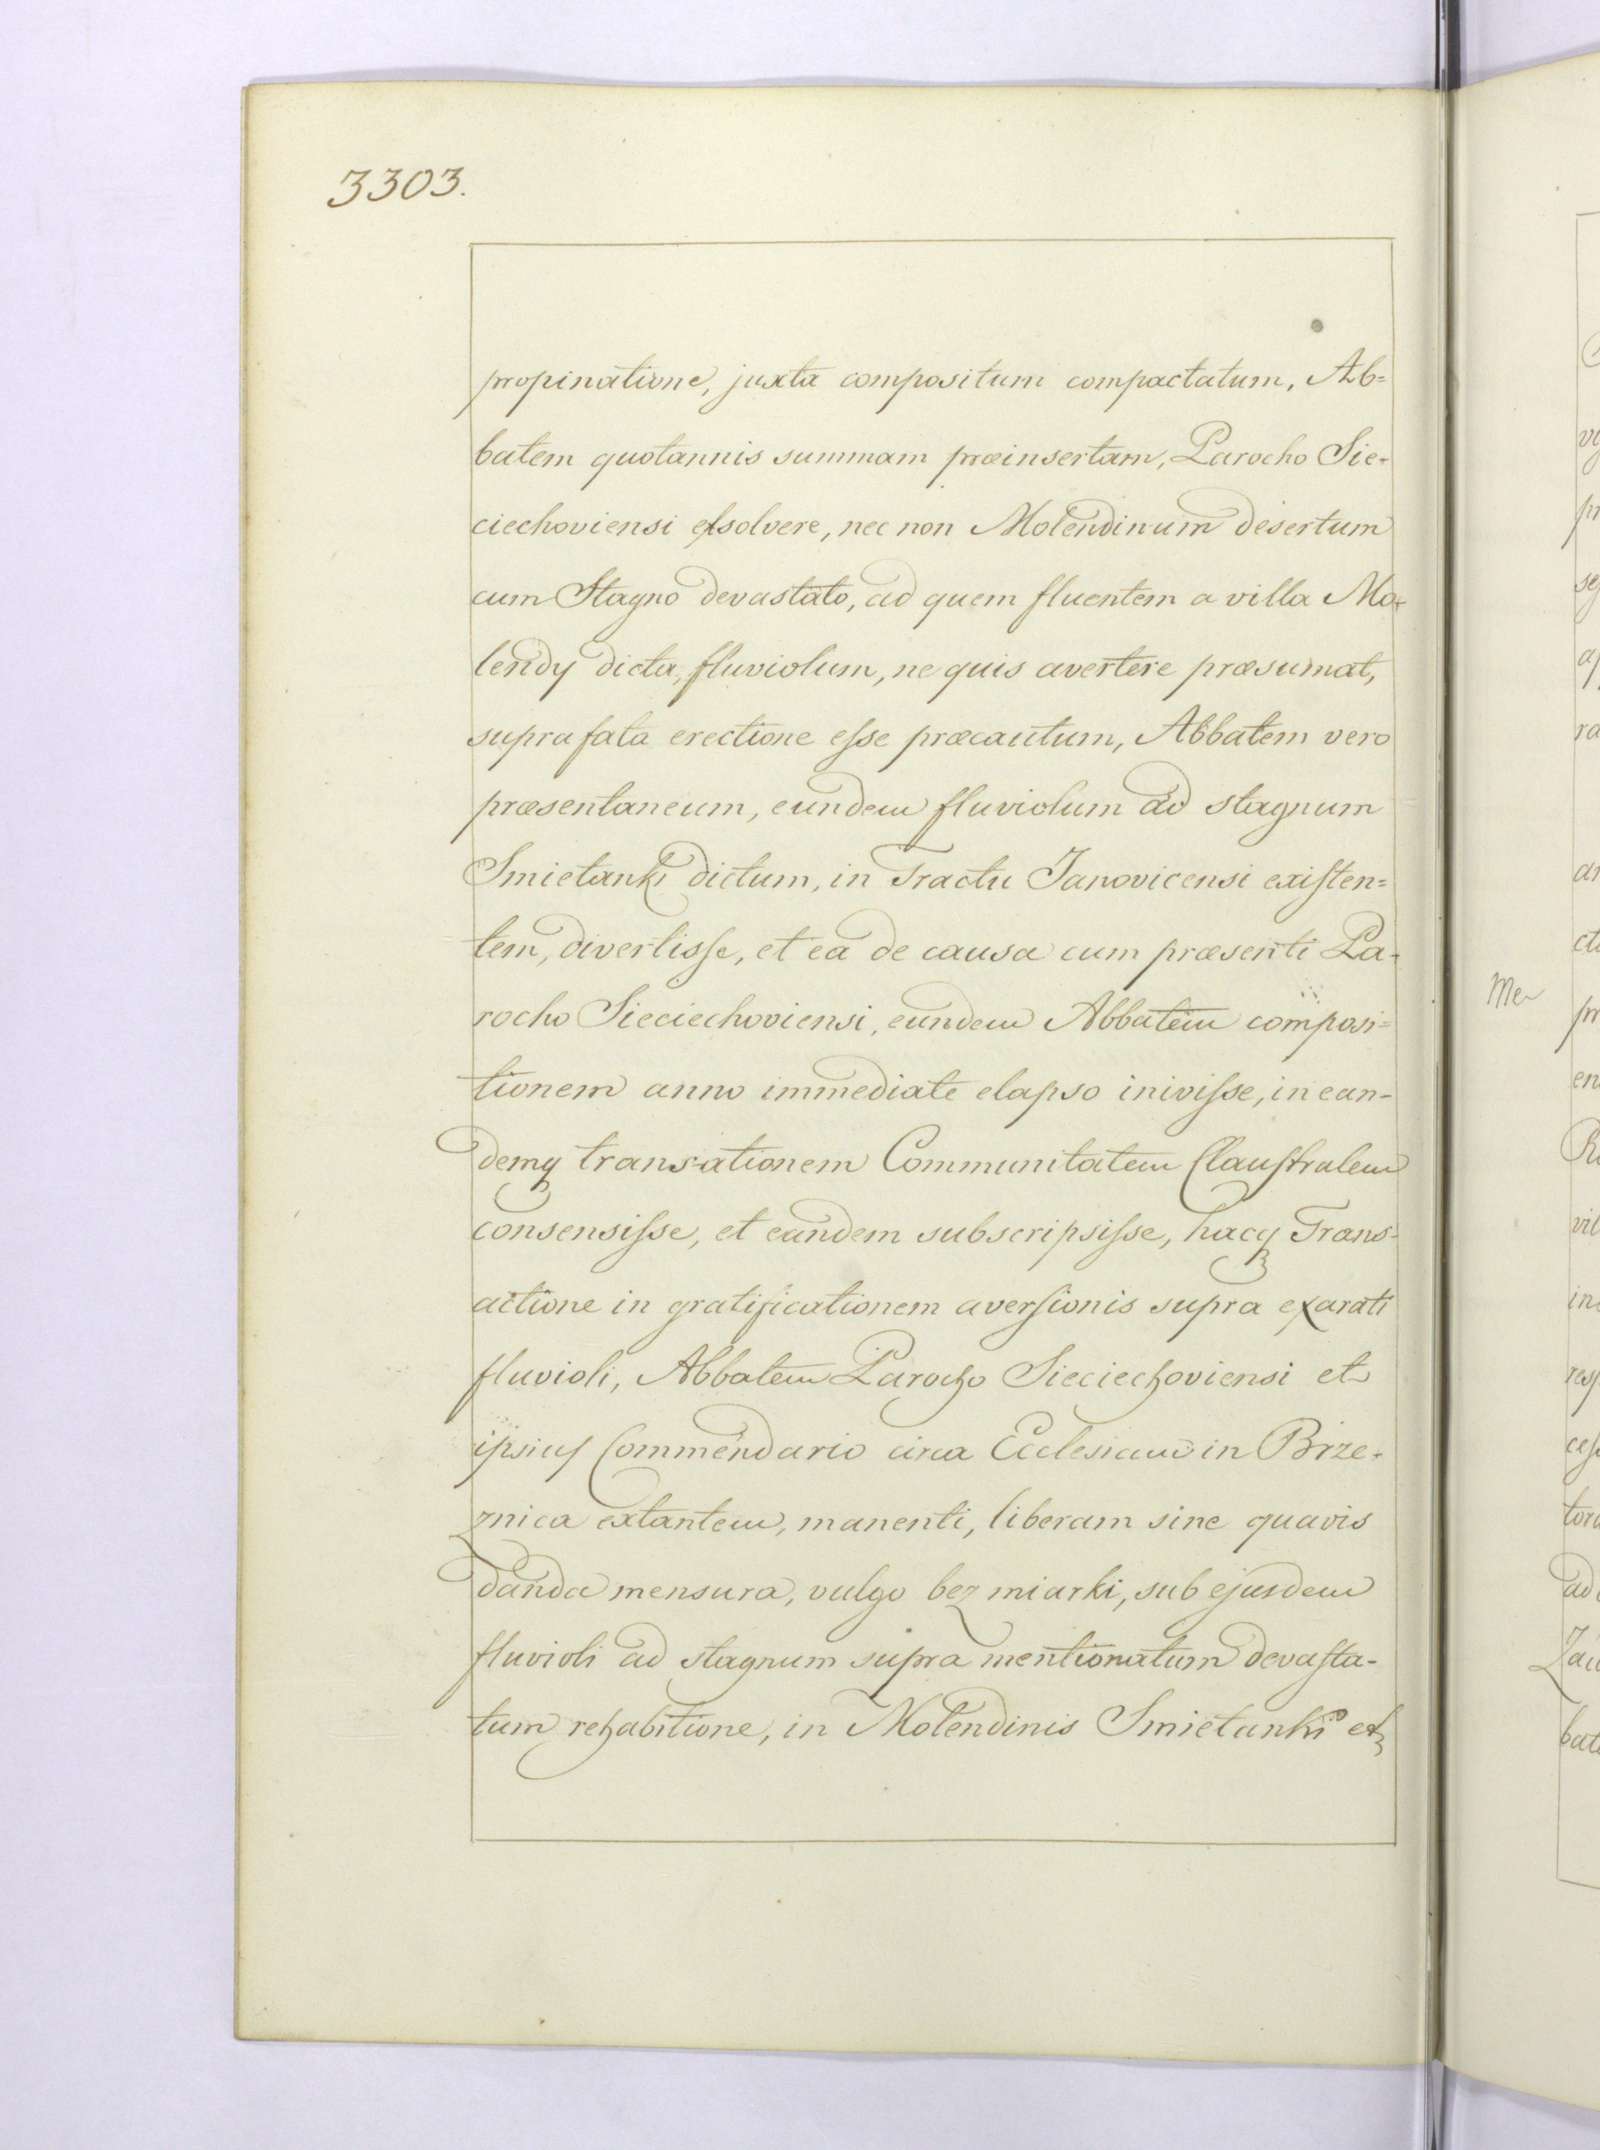 3303.
propinatione, juxta compositum compactatum, Ab=
batem quotannis summam præinsertam, Parocho Sie-
ciechoviensi exsolvere, nec non Molendinum desertum
cum Stagno devastato, ad quem fluentem a villa Mo-
lendy dicta, fluviolum, ne quis avertere præsumat,
supra fata erectione esse præcautum, Abbatem vero
præsentaneum, eundem fluviolum ad stagnum
Smietanki dictum, in Tractu Janovicensi existen=
tem, divertisse, et ea de causa cum præsenti Pa-
rocho Sieciechoviensi, eundem Abbatem composi=
tionem anno immediate elapso inivisse, in ean-
demq transationem Communitatem Claustralem
consensisse, et eandem subscripsisse, hacq Trans-
actione in gratificationem aversionis supra exarati
fluvioli, Abbatem Parocho Sieciechoviensi et
ipsius Commendario circa Ecclesiam in Brze-
znica extantem, manenti, liberam sine quavis
danda mensura, vulgo bez miarki, sub ejusdem
fluvioli ad stagnum supra mentionatum devasta-
tum rehabitione, in Molendinis Smietanki et